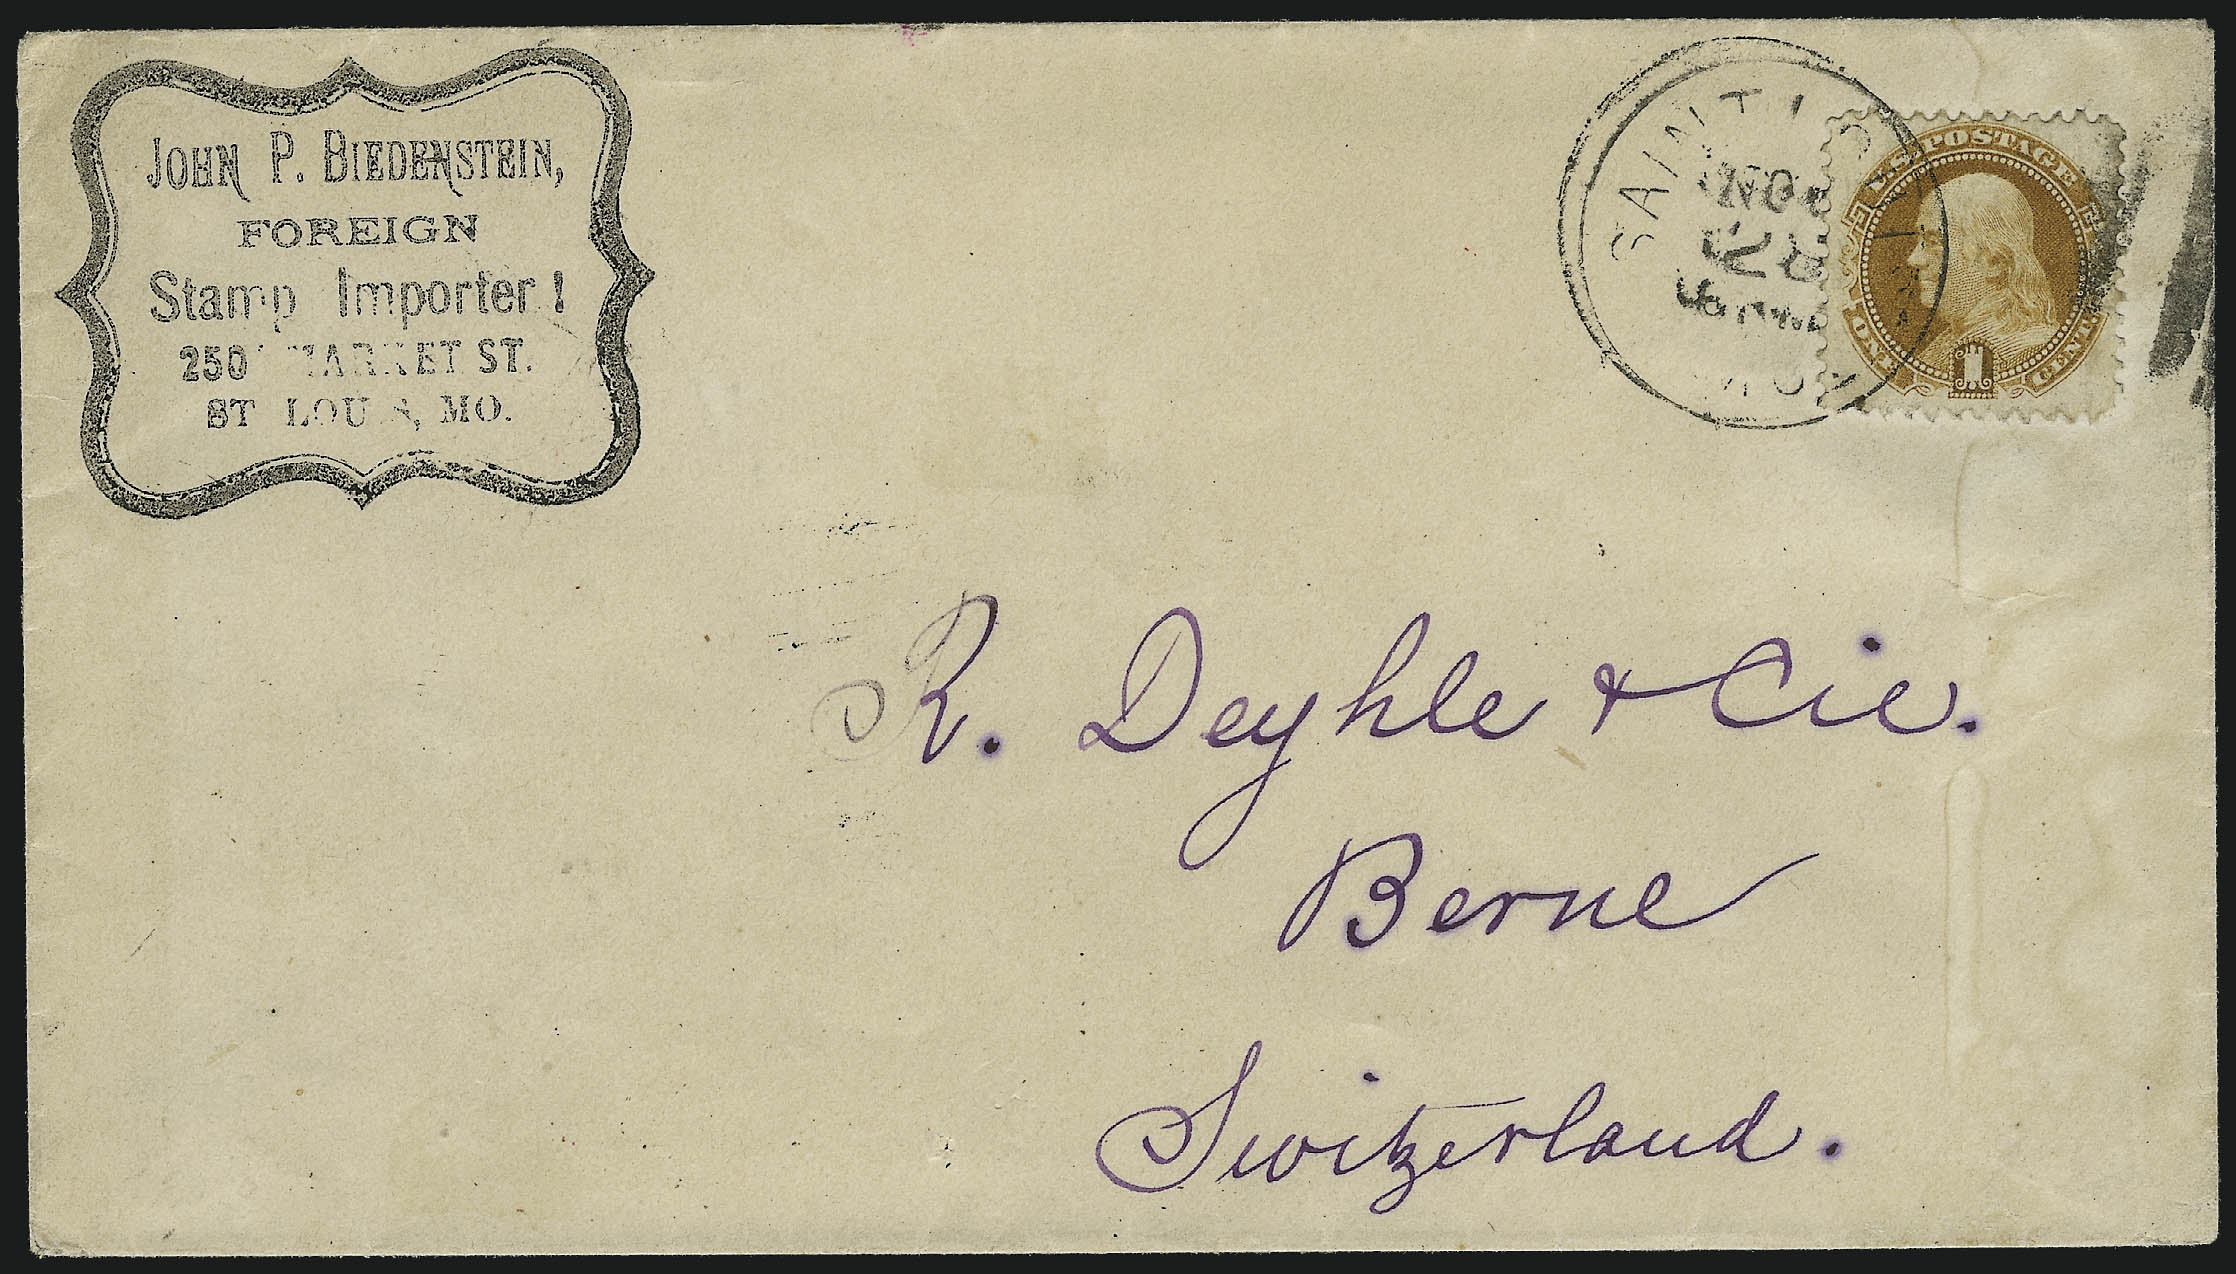 JOHN P. BIEDENSTEIN,
FOREIGN
Stamp Importer!
MARKET ST.
ST LOUIS, MO.
SAINT
NOV
MO
U.S. POSTAGE
ONE 1 CENT
R. Deyhle & Cie.
Berne
Switzerland.